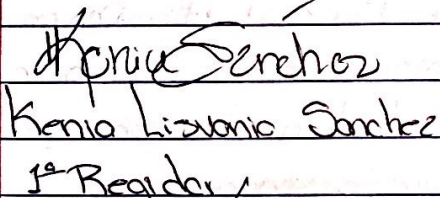 Kenia Sanchez
Kenia Lisvania Sanchez
1ª Regidor